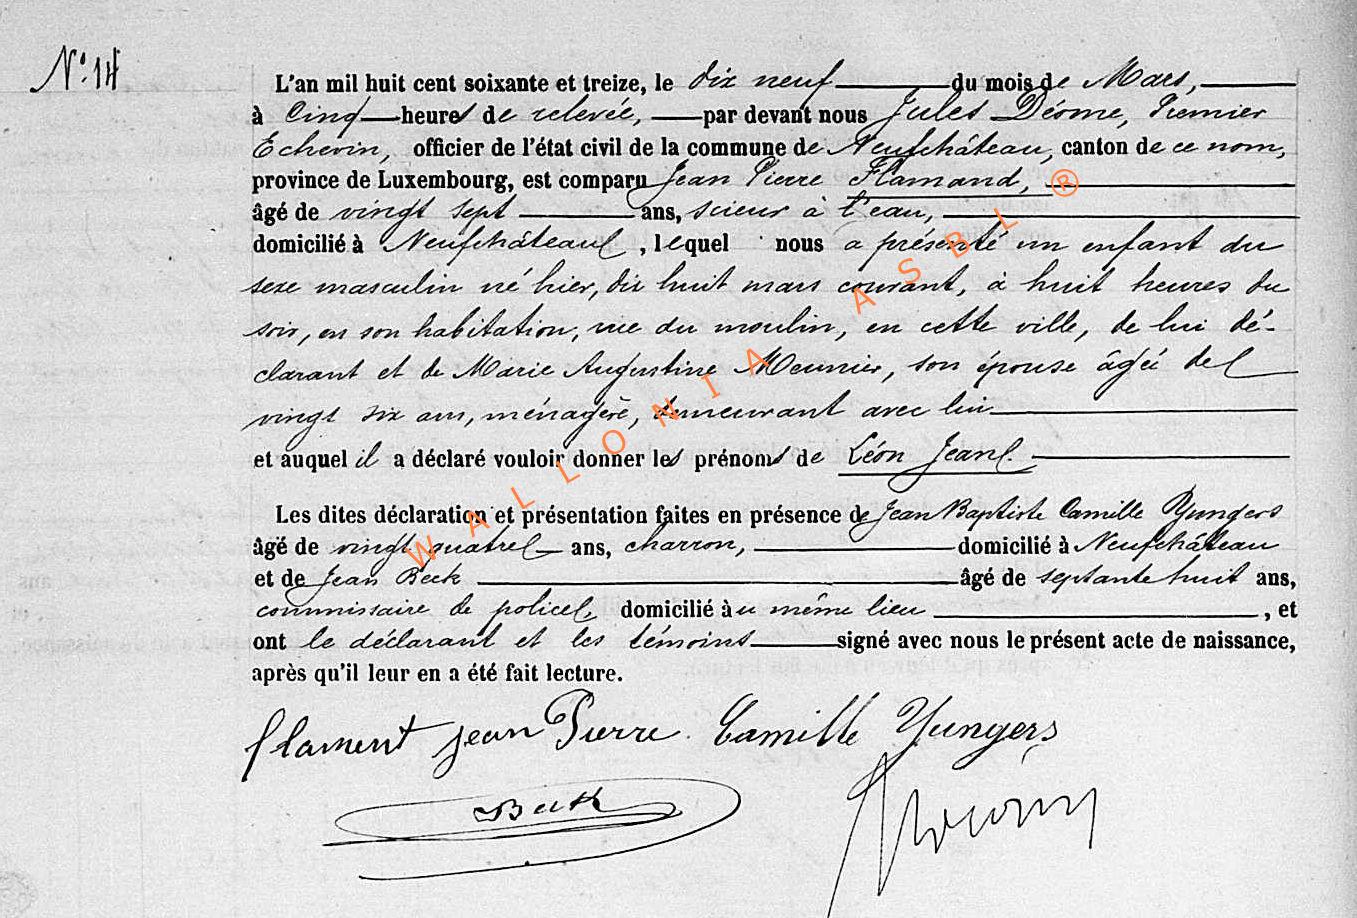 N° 14
L'an mil huit cent soixante et treize, le dix neuf du mois de Mars,
à Cinq heures de relevée, par devant nous Jules Déome, Premier
Echevin, officier de l'état civil de la commune de Neufchâteau, canton de ce nom,
province de Luxembourg, est comparu Jean Pierre Flamand,
âgé de vingt sept ans, scieur à l'eau,
domicilié à Neufchâteau, lequel nous a présenté un enfant du
sexe masculin né hier, dix huit mars courant, à huit heures du
soir, en son habitation, rue du moulin, en cette ville, de lui dé-
clarant et de Marie Augustine Meunier, son épouse âgée de
vingt six ans, ménagère, demeurant avec lui
et auquel il a déclaré vouloir donner les prénoms de Léon Jean.
Les dites déclaration et présentation faites en présence de Jean Baptiste Camille Yungers
âgé de vingt quatre ans, charron, domicilié à Neufchâteau
et de Jean Beck âgé de septante huit ans,
commissaire de police, domicilié au même lieu, et
ont le déclarant et les témoins signé avec nous le présent acte de naissance,
après qu'il leur en a été fait lecture.
flament jean Pierre. Camille Yungers
Beck
WALLONIA ASBL ®